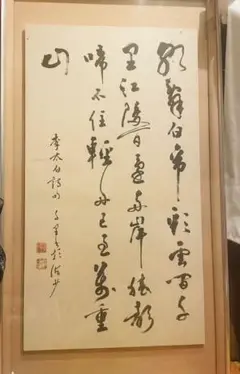 朝辭白帝彩雲間千
里江陵一日還兩岸猿聲
啼不住輕舟已過萬重
山
李太白詩